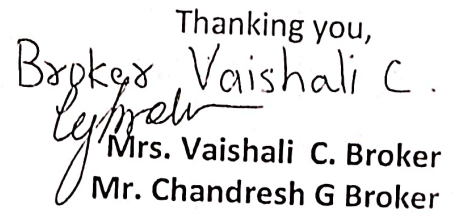 Thanking you,
Broker Vaishali C.
Mrs. Vaishali C. Broker
Mr. Chandresh G Broker